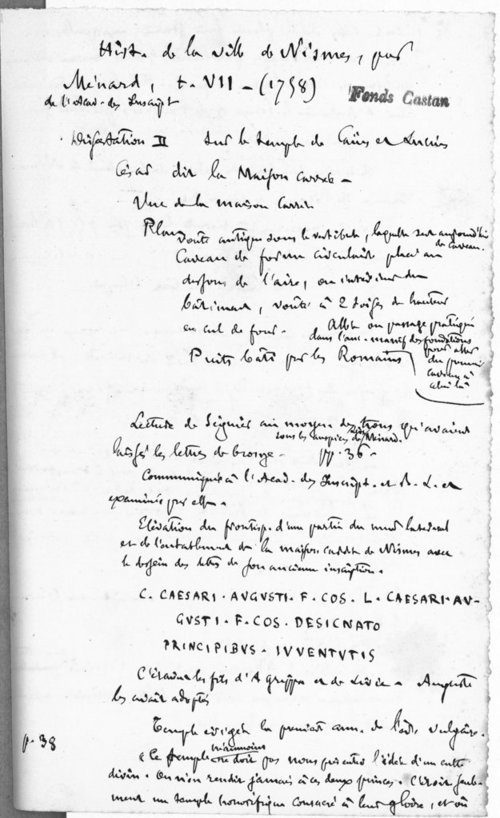 Hist. de la ville de Nismes, par
Ménard, t. VII - (1758)
de l'Acad. des Inscript
Fonds Castan
Dissertation II sur le temple de Caïus et Lucius
César dit la Maison carrée -
Vue de la maison carrée
Plan
voute antique sous le vestibule, laquelle sert aujourd'hui
de caveau.
Caveau de forme circulaire placé au
dessous de l'aire, ou intérieur du
bâtiment, voûté à 2 toises de hauteur
en cul de four.
Allée ou passage pratiqué
dans l'anc. massif des fondations
pour aller
du premier
caveau à
celui là
Puits bâti par les Romains
Lecture de Séguier au moyen des trous qu'avaient
sous les auspices de Ménard.
laissés les lettres de bronze - pp. 36 -
Communiquée à l'Acad. des Inscript. et B. L. et
examinée par elle -
Elévation du frontisp. d'une partie du mur latéral
et de l'entablement de la maison carrée de Nismes avec
le dessein des de son ancienne inscription.
C. CAESARI. AVGVSTI. F. COS. L. CAESARI. AV-
GVSTI. F. COS. DESIGNATO
PRINCIPIBVS. IVVENTVTIS
C'étaient les fils d'Agrippa et de - Auguste
les avait adoptés
Temple érigé la première ann. de l'ère vulgaire.
p. 38
néanmoins
Ce temple ne doit pas nous présenter l'idée d'un culte
divin. On n'en rendit jamais à ces deux princes. C'étoit seule-
ment un temple honorifique consacré à leur gloire, et où